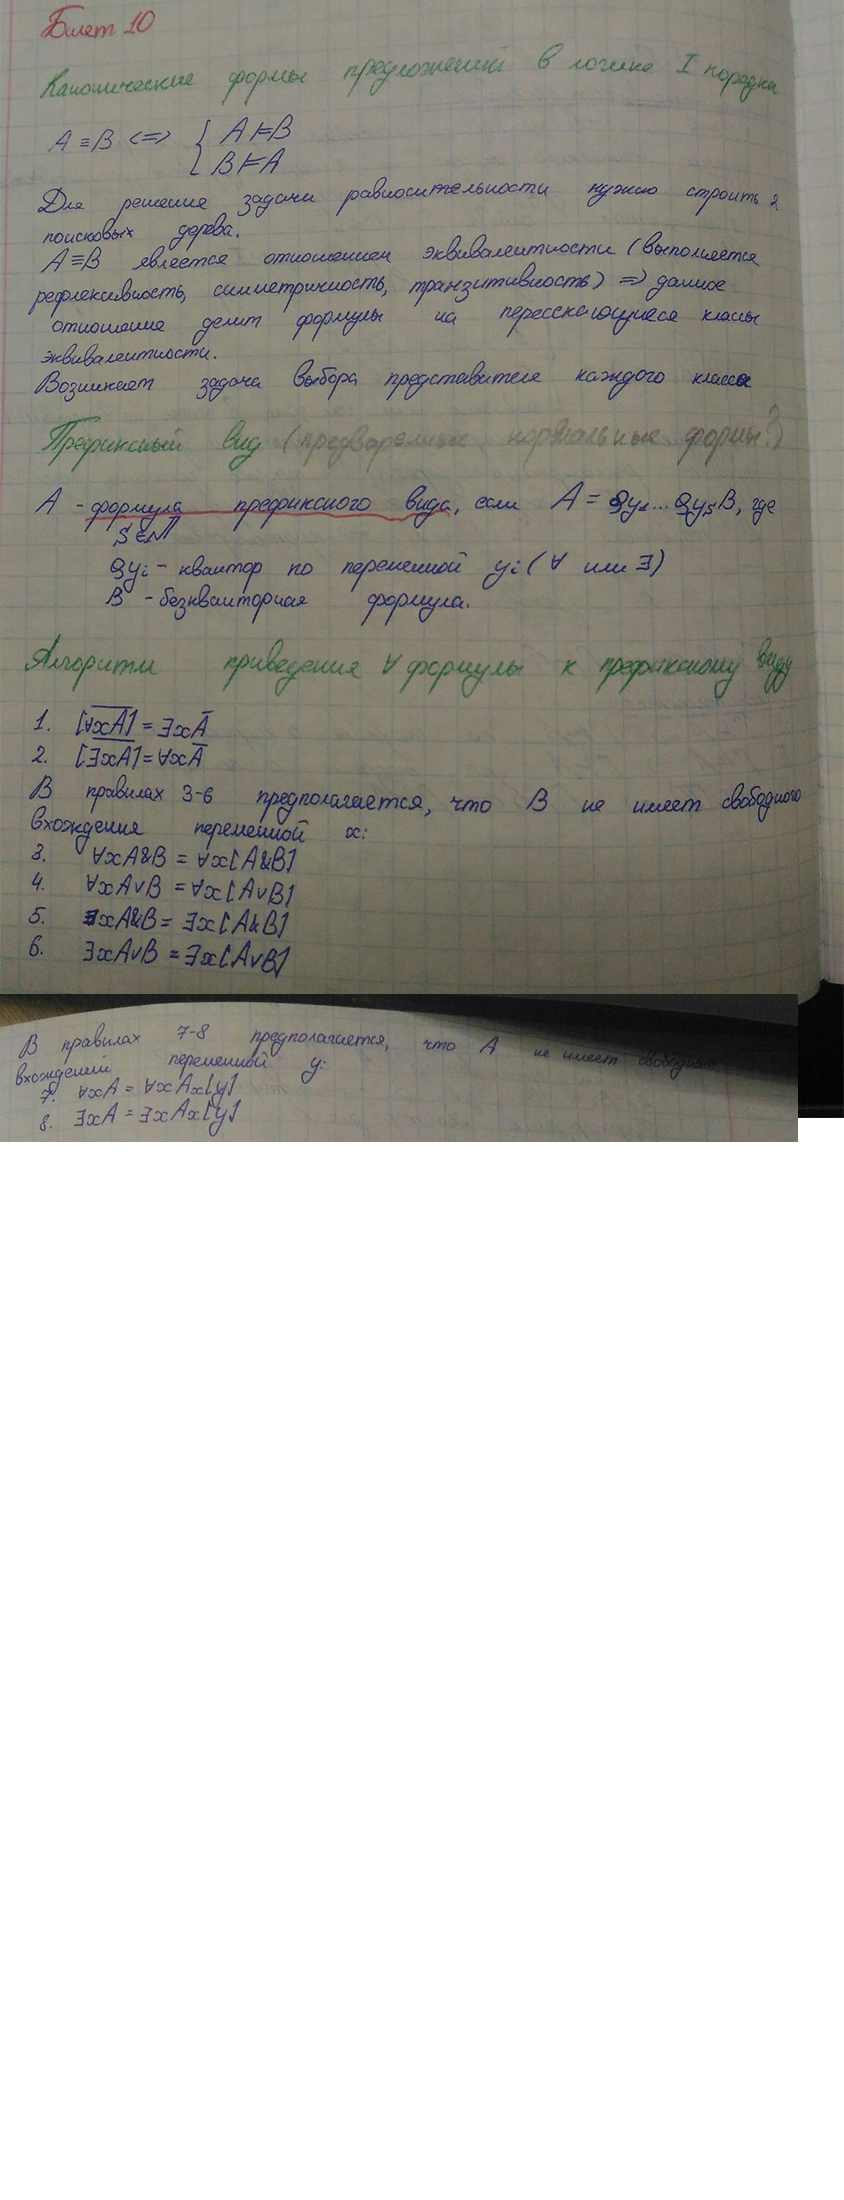 Билет 10
Канонические формы предложений в логике I порядка
A ≡ B <=> { A ⊨ B
B ⊨ A
Для решения задачи равносительности нужно строить 2
поисковых дерева.
A ≡ B является отношением эквивалентности (выполняется
рефлексивность, симметричность, транзитивность) => данное
отношение делит формулы на пересекающиеся классы
эквивалентности.
Возникает задача выбора представителя каждого класса
Префиксный вид (предваренные нормальные формы?)
A - формула префиксного вида, если A = Qy₁...QysB, где
S∈N
Qyi - квантор по переменной yi (∀ или ∃)
B - безкванторная формула.
Алгоритм приведения ∀ формулы к префиксному виду
1. [∀x̅A̅] = ∃xA̅
2. [∃̅x̅A̅] = ∀xA̅
В правилах 3-6 предполагается, что B не имеет свободного
вхождения переменной x:
3. ∀xA&B = ∀x[A&B]
4. ∀xA∨B = ∀x[A∨B]
5. ∃xA&B = ∃x[A&B]
6. ∃xA∨B = ∃x[A∨B]
В правилах 7-8 предполагается, что A не имеет
вхождений переменной y:
7. ∀xA = ∀xAx[y]
8. ∃xA = ∃xAx[y]